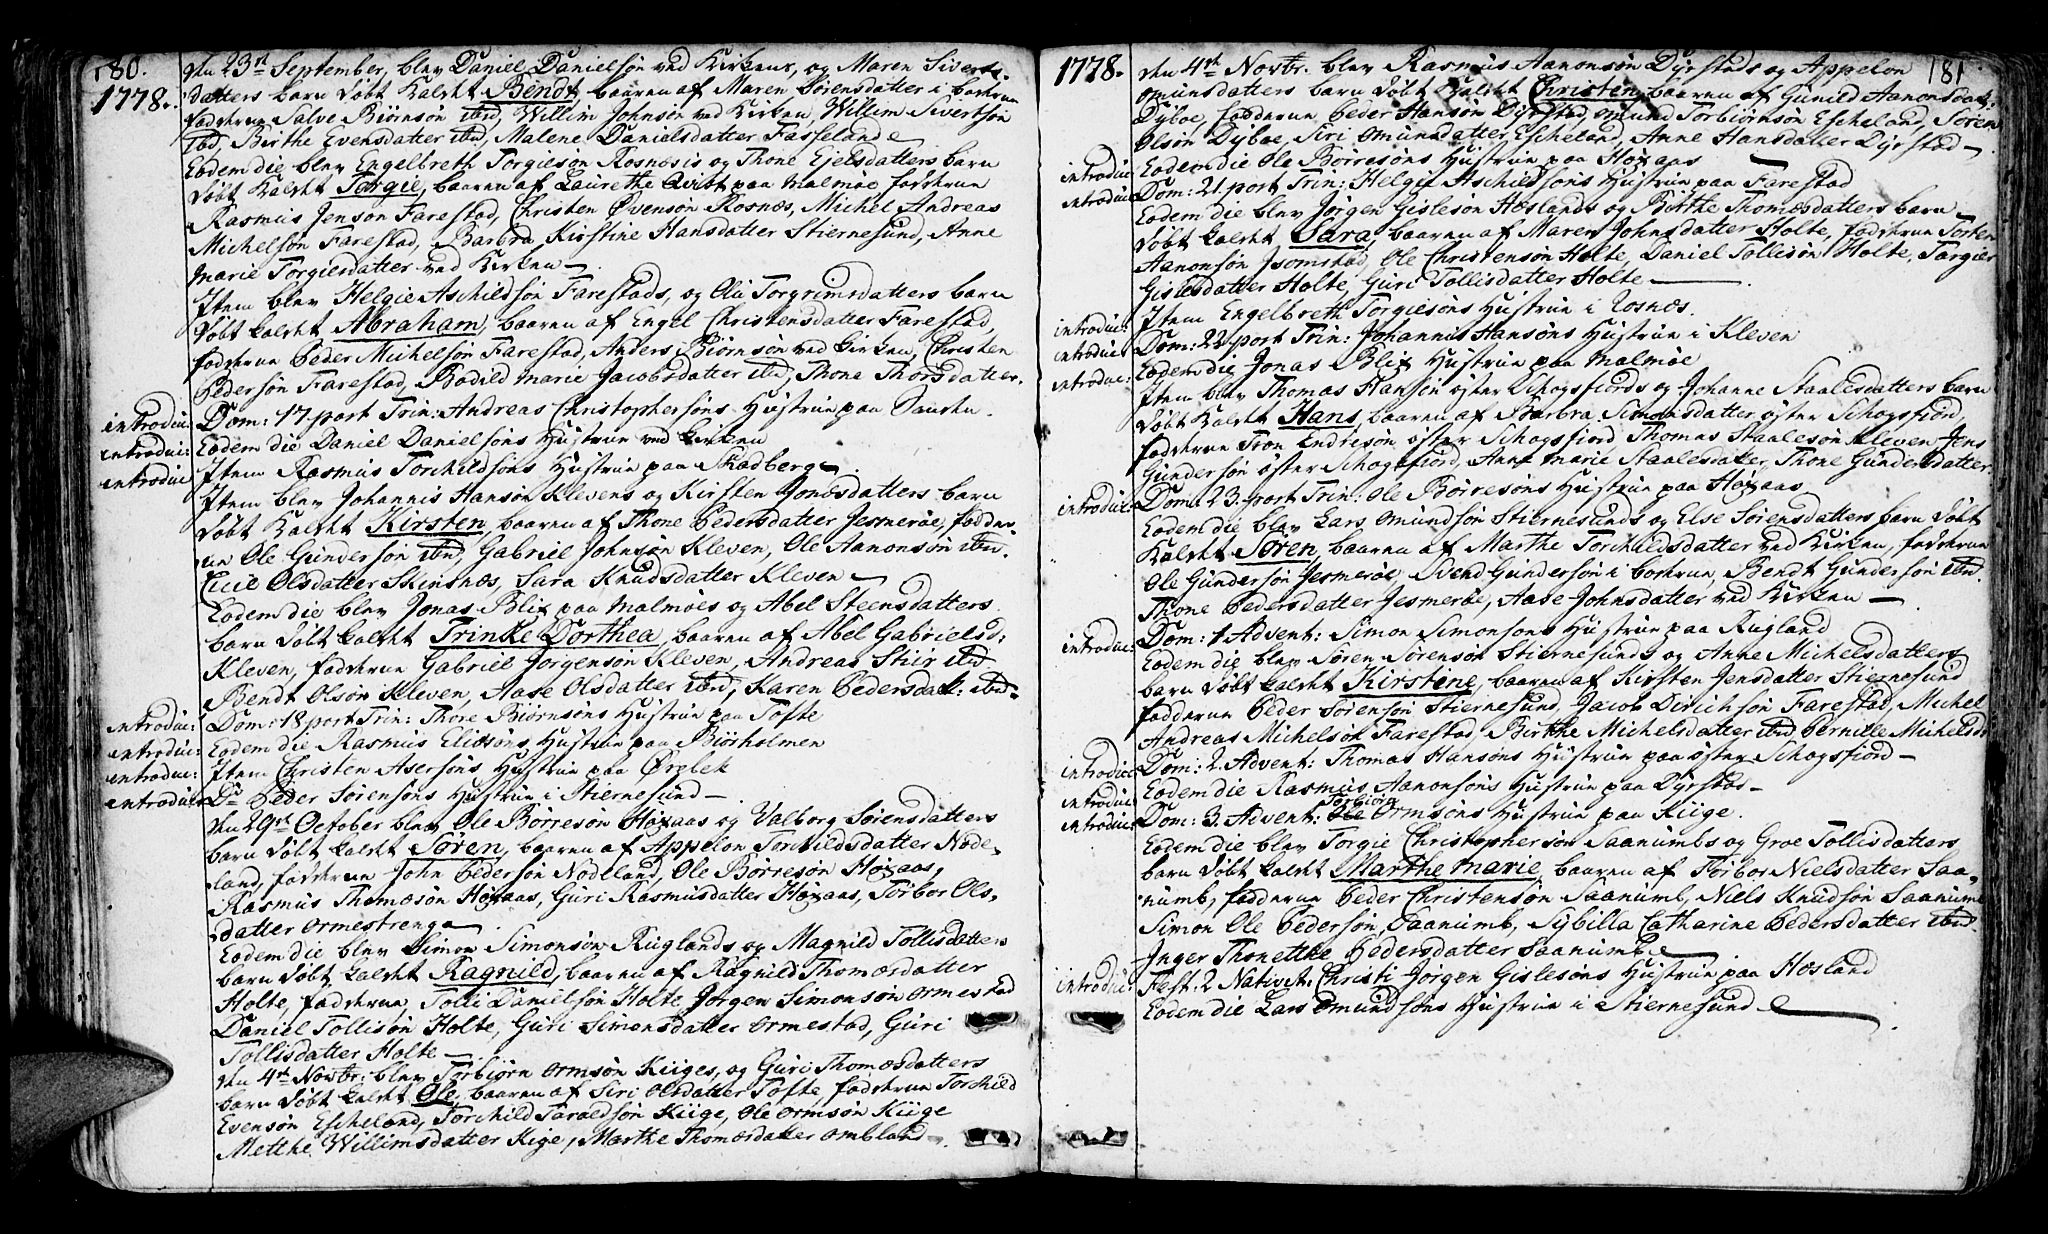 180.
1778.
den 23de September, blev Daniel Danielsøn ved Kirkens, og Maren Siverts-
datters barn døbt kaldet Bendt, baaren af Maren Sørensdatter i borkrun
fadderne Salve Biørnsøn ibid, Willim Johnsøn ved Kirken, Willum Sivertsøn
ibd, Birthe Evensdatter ibd, Malene Danielsdatter Fasseland
Eodem die blev Engelbreth Torgiesøn Rosnæsis og Thone Ejelsdatters barn
døbt kaldet Torgie, baaren af Laurethe Qvist paa Malmøe fadderne
Rasmus Jensøn Farestad, Christen Øvensøn Rosnæs, Michel Andreas
Michelsøn Farestad, Barbra Kirstine Hansdatter Stiernesund, Anne
Marie Torgiesdatter ved Kirken
Item blev Helgie Aschildsøn Farestads, og Olu Torgrimsdatters barn
døbt kaldet Abraham, baaren af Engel Christensdatter Farestad,
fadderne Peder Michelsøn Farestad, Anders Biørnsøn ved Kirken, Christen
Pedersøn Farestad, Bodild Marie Jacobsdatter ibd, Thone Thorsdatter.
introduc: Dom: 17 post Trin: Andreas Christophersøns Hustrue paa Sansken.
introduc: Eodem die Daniel Danielsøns Hustrue ved Kirken
introduc: Item Rasmus Torchildsøns Hustrue paa Skadberg
Item blev Johannis Hansøn Klevens og Kirsten Jonasdatters barn
døbt kaldet Kirsten, baaren af Thone Pedersdatter Jesmerøe, fadder-
ne Ole Gundersøn ibd, Gabriel Johnsøn Kleven, Ole Aanonsøn ibd.
Cecie Olsdatter Skinsnæs, Sara Knudsdatter Kleven
Eodem die blev Jonas Blix paa Malmøes og Abel Steensdatters
barn døbt kaldet Trinke Dorthea, baaren af Abel Gabrielsd:
Kleven, fadderne Gabriel Jørgensøn Kleven, Andreas Stir ibd
Bendt Olsøn Kleven, Aase Olsdatter ibd, Karen Pedersdatt: ibd.
introduc: Dom: 18 post Trin: Thore Biørnsøns Hustrue paa Tofte
introduc: Eodem die Rasmus Eliæsøns Hustrue paa Biørholmen
introduc: Item Christen Asersøns Hustrue paa Ørelek
introduc: Do Peder Sørensøns Hustrue i Stiernesund
den 29de October blev Ole Børresøn Høxaas og Valborg Sørensdatters
barn døbt kaldet Søren, baaren af Appelon Torchildsdatter Node-
land, fadderne John Pedersøn Nodeland, Ole Børresøn Høxaas,
Rasmus Thomæsøn Høxaas, Guri Rasmusdatter Høxaas, Torbor Ols-
datter Ormestreng
Eodem die blev Simon Simonsøn Ruglands og Magnild Tollisdatters
barn døbt kaldet Ragnild, baaren af Ragnild Thomæsdatter
Holte, fadderne, Tolli Danielsøn Holte, Jørgen Simonsøn Ormestad
Daniel Tollisøn Holte, Guri Simonsdatter Ormestad, Guri
Tollisdatter Holte
den 4de Novbr: blev Torbiørn Ormsøn Kiiges, og Guri Thomæsdatters
barn døbt kaldet Ole, baaren af Siri Olsdatter Tofte, fadderne Torchild
Evensøn Escheland, Torchild Taraldsøn Kiige, Ole Ormsøn Kiige
Metthe Willimsdatter Kige, Marthe Thomæsdatter Ombland.
1778.
181
den 4de Novbr. blev Rasmus Aanonsøn Dyrstads og Appelon
Omunsdatters barn døbt kaldet Christen, baaren af Gunild Aanonsdatt:
Dyboe, fadderne Peder Hansøn Dyrstad, Omund Torbiørnsøn Escheland, Søren
Olsøn Dyboe, Siri Omunsdatter Escheland, Anne Hansdatter Dyrstad
introduc: Eodem die Ole Børresøns Hustrue paa Høxaas
introduc: Dom: 21. post Trin: Helgie Aschildsøns Hustrue paa Farestad
Eodem die blev Jørgen Gislesøn Høslands og Birthe Thomæsdatters barn
døbt kaldet Sara, baaren af Maren Johnsdatter Holte, fadderne Torken
Aanonsøn Isomstad, Ole Christensøn Holte, Daniel Tollisøn Holte, Torgier
Gislesdatter Holte, Guri Tollisdatter Holte
introduc: Item Engelbreth Torgiesøns Hustrue i Rosnæs.
introduc: Dom: 22 post Trin: Johannis Hansøns Hustrue i Kleven
introduc: Eodem die Jonas Blix Hustrue paa Malmøe
Item blev Thomas Hansøn øster Schogsfiords og Johanne Staalesdatters barn
døbt kaldet Hans, baaren af Barbra Simonsdatter øster Schogsfiord,
fadderne Tron Endresøn øster Schogsfiord, Thomas Staalesøn Kleven, Jens
Gundersøn øster Schogsfiord, Anne Marie Staalesdatter, Thone Gundersdatter.
introduc: Dom: 23. post Trin: Ole Børresøns Hustrue paa Høxaas
Eodem die blev Lars Omundsøn Stiernesunds og Else Sørensdatters barn døbt
kaldet Søren, baaren af Marthe Torchildsdatter ved Kirken, fadderne
Ole Gundersøn Jesmerøe, Svend Gundersøn i borkrun, Bendt Gundersøn ibd.
Thone Pedersdatter Jesmerøe, Aase Johnsdatter ved Kirken
introduc: Dom: 1 Advent: Simon Simonsøns Hustrue paa Rugland
Eodem die blev Søren Sørensøn Stiernesunds og Anne Michelsdatters
barn døbt kaldet Kirstine, baaren af Kirsten Jensdatter Stiernesund
fadderne Peder Sørensøn Stiernesund, Jacob Dirichsøn Farestad, Michel
Andreas Michelsøn Farestad, Birthe Michelsdatter ibd, Pernille Michelsd:
introduc: Dom: 2. Advent: Thomas Hansøns Hustrue paa øster Schogsfiord
introduc: Eodem die Rasmus Aanonsøns Hustrue paa Dyrstad
introduc: Dom: 3. Advent: Ole Torbiørn Ormsøns Hustrue paa Kiige.
Eodem die blev Torgie Christophersøn Saanumbs og Groe Tollisdatters
barn døbt kaldet Marthe Marie, baaren af Torbor Nielsdatter Saa-
numb, fadderne Peder Christensøn Saanumb, Niels Knudsøn Saanumb
Simon Ole Pedersøn, Saanumb, Sybilla Catharine Pedersdatter ibd.
Inger Thonethe Pedersdatter Saanumb
introduc: Fest. 2 Nativit: Christi Jørgen Gislesøns Hustrue paa Høsland
Eodem die Lars Omundsøns Hustrue i Stiernesund